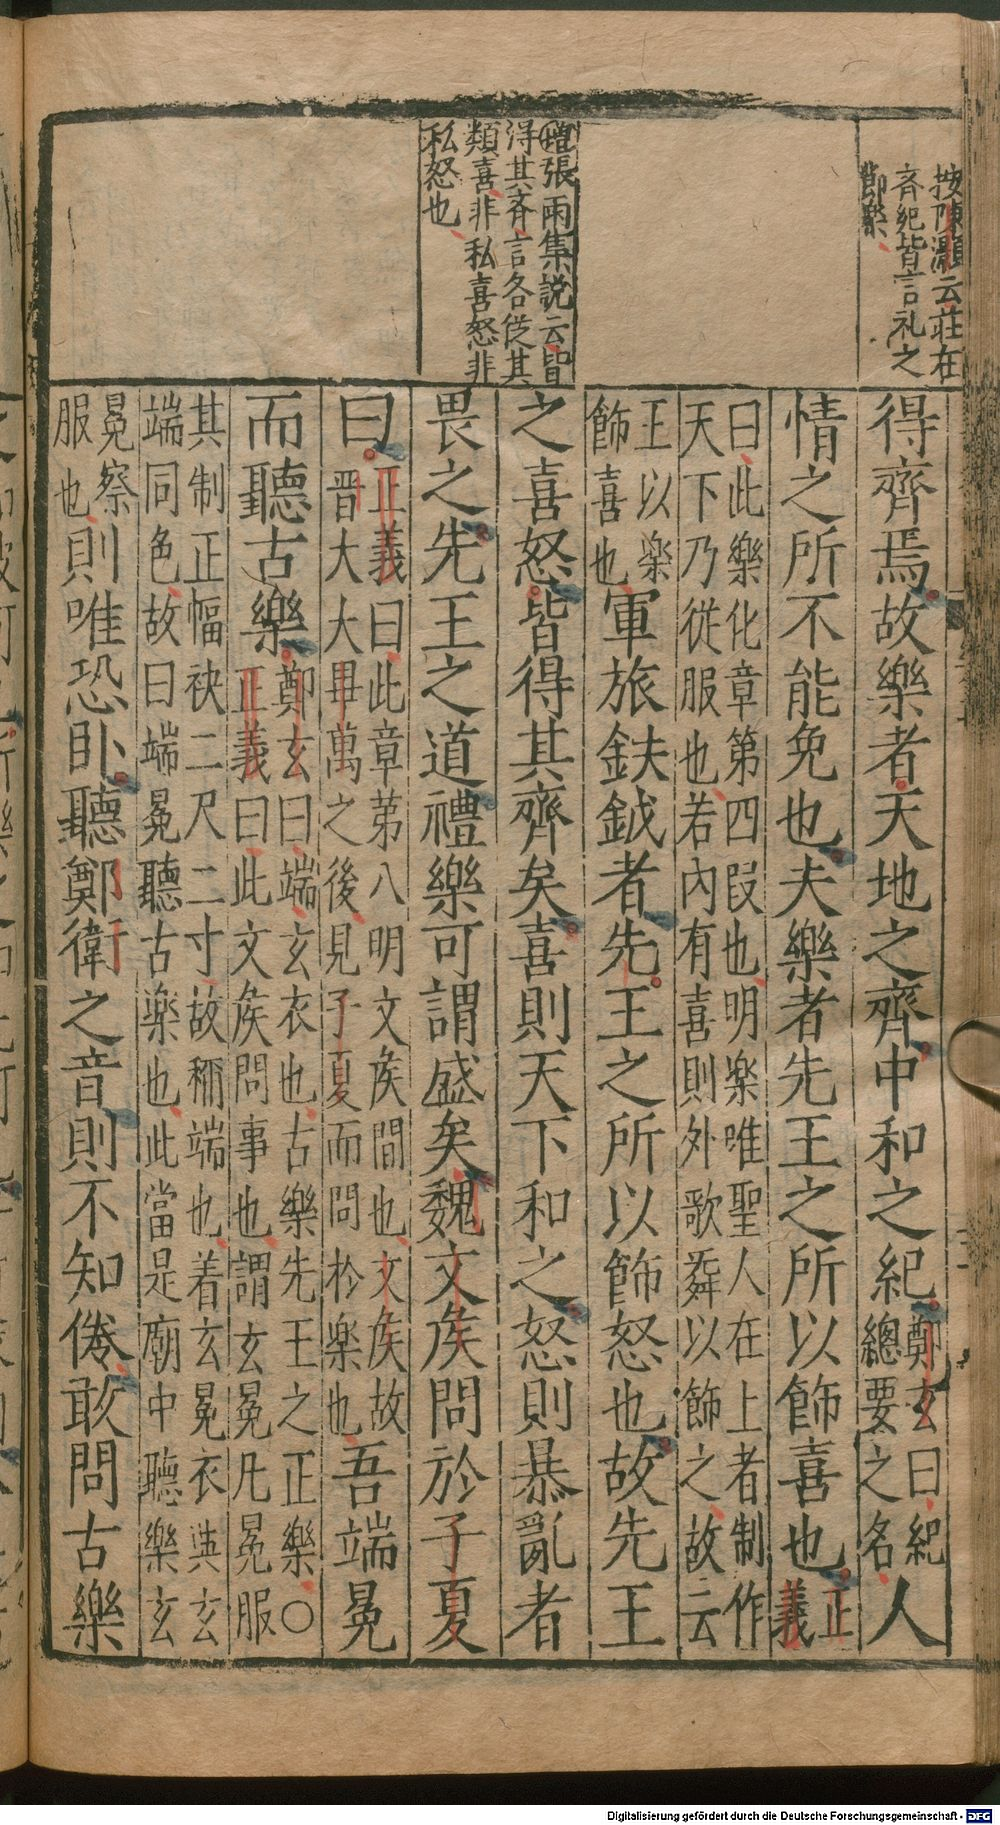 按陳灝云莊在
齐紀皆言礼之
節樂
增張雨集説云皆
得其斉言各從其
類喜非私喜怒非
私怒也
得齊焉故樂者天地之齊中和之紀鄭玄曰紀
總要之名人
情之所不能免也夫樂者先王之所以飾喜也正
義
曰此樂化章第四段也明楽唯聖人在上者制作
天下乃從服也若內有喜則外歌舞以飾之故云
王以楽
飾喜也軍旅鈇鉞者先王之所以飾怒也故先王
之喜怒皆得其齊矣喜則天下和之怒則暴亂者
畏之先王之道禮樂可謂盛矣魏文矦問於子夏
曰正義曰此章苐八明文矦間也文矦故
晋大大畢萬之後見子夏而問於楽也吾端冕
而聽古樂鄭玄曰端玄衣也古樂先王之正樂○
正義曰此文矦問事也謂玄冕凡冕服
其制正幅袂二尺二寸故稱端也着玄冕衣與玄
端同色故曰端冕聽古楽也此當是廟中聽樂玄
冕祭
服也則唯恐卧聽鄭衛之音則不知倦敢問古樂
Digitalisierung gefördert durch die Deutsche Forschungsgemeinschaft - DFG